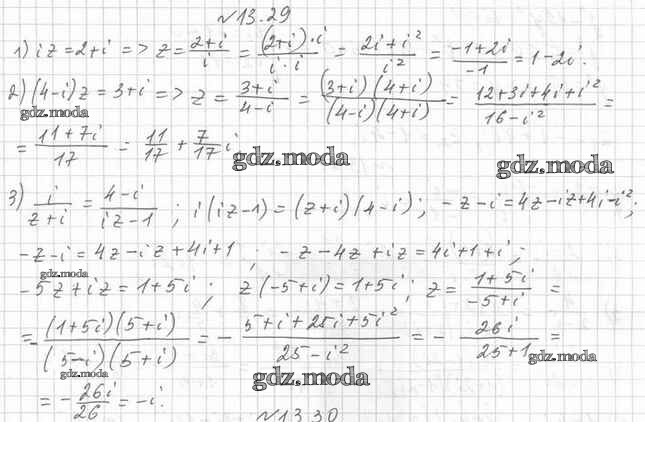 №13.29
1) iz = 2+i => z = (2+i)/i = ((2+i)·i)/(i·i) = (2i+i²)/i² = (-1+2i)/(-1) = 1-2i.
2) (4-i)z = 3+i => z = (3+i)/(4-i) = ((3+i)(4+i))/((4-i)(4+i)) = (12+3i+4i+i²)/(16-i²) =
gdz.moda
= (11+7i)/17 = 11/17 + 7/17 i.
gdz.moda gdz.moda
3) i/(z+i) = (4-i)/(iz-1) ; i(iz-1) = (z+i)(4-i) ; -z-i = 4z-iz+4i-i² ;
-z-i = 4z-iz+4i+1 ; -z-4z+iz = 4i+1+i ;
gdz.moda
-5z+iz = 1+5i ; z(-5+i) = 1+5i ; z = (1+5i)/(-5+i) =
= -((1+5i)(5+i))/((5-i)(5+i)) = -(5+i+25i+5i²)/(25-i²) = -26i/(25+1) =
gdz.moda gdz.moda gdz.moda
= -26i/26 = -i.
№13.30